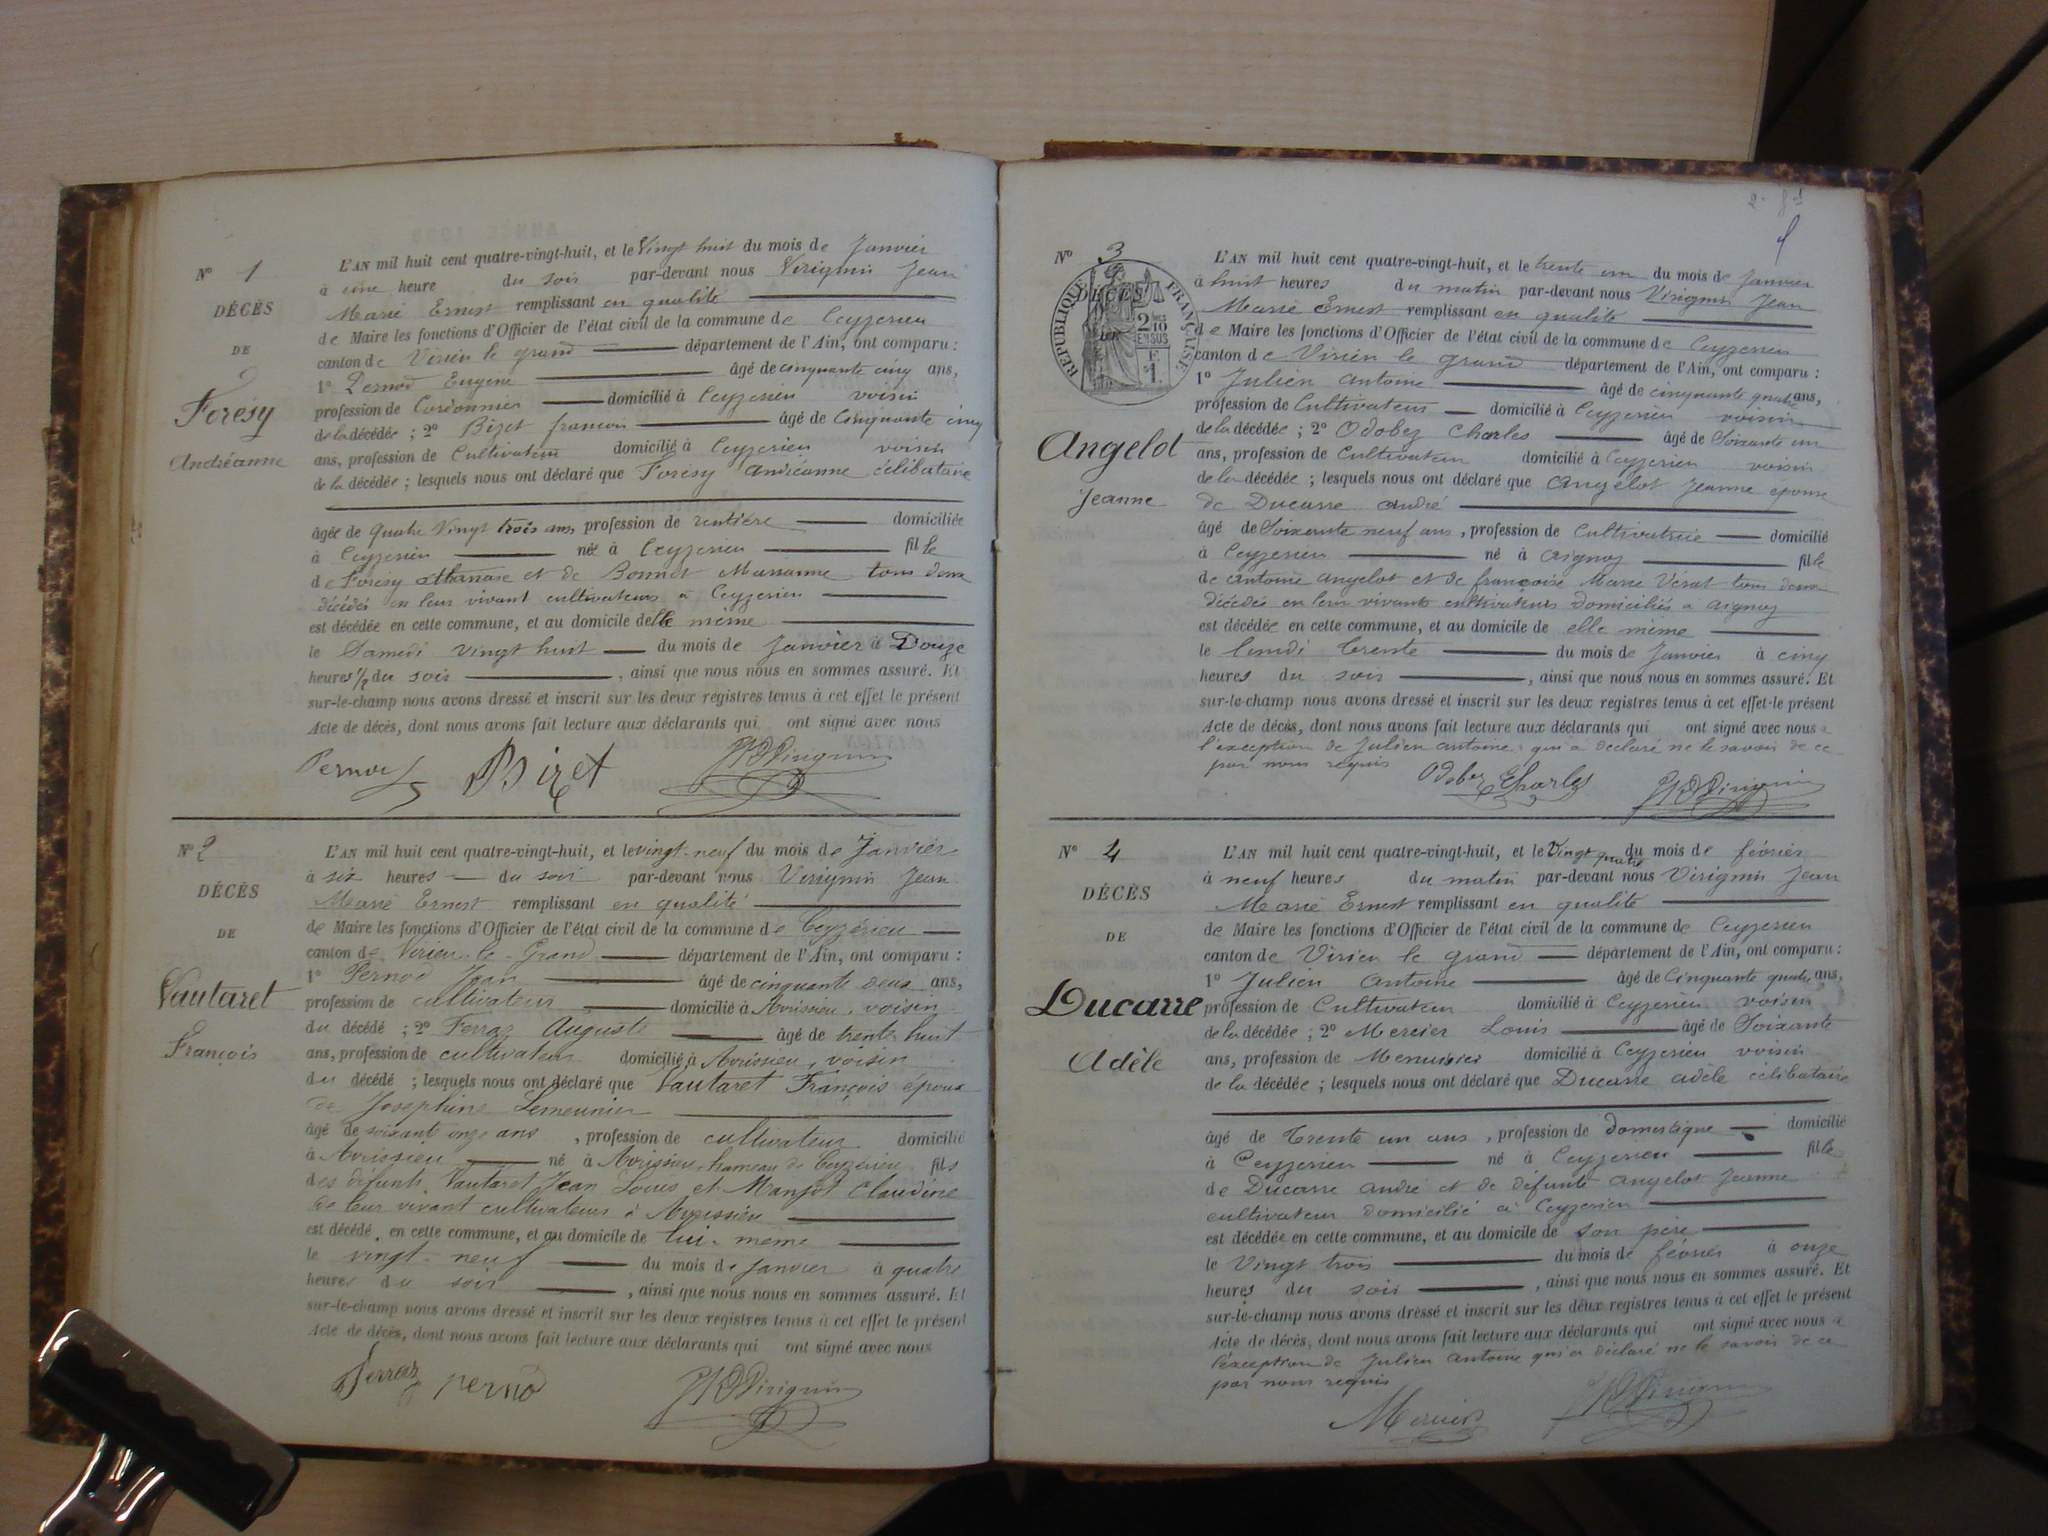 N° 1
DÉCÈS
DE
Foresy
Andréanne
L'AN mil huit cent quatre-vingt-huit, et le Vingt huit du mois de Janvier
à une heure du soir par-devant nous Virignin Jean
Marie Ernest remplissant en qualité
de Maire les fonctions d'Officier de l'état civil de la commune de Ceyzerieu
canton de Virieu le grand département de l'Ain, ont comparu :
1° Pernod Eugène âgé de cinquante cinq ans,
profession de Cordonnier domicilié à Ceyzerieu voisin
de la décédée ; 2° Bizet françois âgé de Cinquante cinq
ans, profession de Cultivateur domicilié à Ceyzerieu voisin
de la décédée ; lesquels nous ont déclaré que Foresy Andréanne célibataire
âgée de Quatre Vingt trois ans, profession de rentière domiciliée
à Ceyzerieu née à Ceyzerieu fille
de Foresy Athanase et de Bonnet Marianne tous deux
décédés en leur vivant cultivateurs à Ceyzerieu
est décédée en cette commune, et au domicile delle même
le Samedi vingt huit du mois de Janvier à Douze
heures ½ du soir , ainsi que nous nous en sommes assuré. Et
sur-le-champ nous avons dressé et inscrit sur les deux registres tenus à cet effet le présent
Acte de décès, dont nous avons fait lecture aux déclarants qui ont signé avec nous
Pernod Bizet Virignin
N° 2
DÉCÈS
DE
Vautaret
François
L'AN mil huit cent quatre-vingt-huit, et le vingt-neuf du mois de Janvier
à six heures du soir par-devant nous Virignin Jean
Marie Ernest remplissant en qualité
de Maire les fonctions d'Officier de l'état civil de la commune de Ceyzérieu
canton de Virieu-le-Grand département de l'Ain, ont comparu :
1° Pernod Jean âgé de cinquante deux ans,
profession de cultivateur domicilié à Avrissieu, voisin
du décédé ; 2° Ferraz Auguste âgé de trente huit
ans, profession de cultivateur domicilié à Avrissieu, voisin
du décédé ; lesquels nous ont déclaré que Vautaret François époux
de Joséphine Lemeunier
âgé de soixante onze ans , profession de cultivateur domicilié
à Avrissieu né à Avrissieu hameau de Ceyzérieu fils
des défunts Vautaret Jean Louis et Manjot Claudine
de leur vivant cultivateurs à Avrissieu
est décédé en cette commune, et au domicile de lui-même
le vingt-neuf du mois de Janvier à quatre
heures du soir , ainsi que nous nous en sommes assuré. Et
sur-le-champ nous avons dressé et inscrit sur les deux registres tenus à cet effet le présent
Acte de décès, dont nous avons fait lecture aux déclarants qui ont signé avec nous
Ferraz pernod Virignin
N° 3
DÉCÈS
RÉPUBLIQUE FRANÇAISE
2/10 EN SUS
Angelot
Jeanne
L'AN mil huit cent quatre-vingt-huit, et le trente un du mois de Janvier
à huit heures du matin par-devant nous Virignin Jean
Marie Ernest remplissant en qualité
de Maire les fonctions d'Officier de l'état civil de la commune de Ceyzerieu
canton de Virieu le grand département de l'Ain, ont comparu :
1° Julien Antoine âgé de cinquante quatre ans,
profession de Cultivateur domicilié à Ceyzerieu voisin
de la décédée ; 2° Odobez Charles âgé de Soixante un
ans, profession de Cultivateur domicilié à Ceyzerieu voisin
de la décédée ; lesquels nous ont déclaré que Angelot Jeanne épouse
de Ducarre André
âgé de Soixante neuf ans , profession de Cultivatrice domicilié
à Ceyzerieu né à Aignoz fille
de Antoine Angelot et de françoise Marie Vérat tous deux
décédés en leur vivant cultivateurs domiciliés à Aignoz
est décédée en cette commune, et au domicile de elle même
le lundi trente du mois de Janvier à cinq
heures du soir , ainsi que nous nous en sommes assuré. Et
sur-le-champ nous avons dressé et inscrit sur les deux registres tenus à cet effet le présent
Acte de décès, dont nous avons fait lecture aux déclarants qui ont signé avec nous à
l'exception de Julien Antoine qui a déclaré ne le savoir de ce
par nous requis
Odobez Charles Virignin
N° 4
DÉCÈS
DE
Ducarre
Adèle
L'AN mil huit cent quatre-vingt-huit, et le Vingt quatre du mois de février
à neuf heures du matin par-devant nous Virignin Jean
Marie Ernest remplissant en qualité
de Maire les fonctions d'Officier de l'état civil de la commune de Ceyzerieu
canton de Virieu le grand département de l'Ain, ont comparu :
1° Julien Antoine âgé de Cinquante quatre ans,
profession de Cultivateur domicilié à Ceyzerieu voisin
de la décédée ; 2° Mercier Louis âgé de Soixante
ans, profession de Menuisier domicilié à Ceyzerieu voisin
de la décédée ; lesquels nous ont déclaré que Ducarre Adèle célibataire
âgé de Trente un ans , profession de domestique domicilié
à Ceyzerieu né à Ceyzerieu fille
de Ducarre André et de défunte Angelot Jeanne
cultivateur domicilié à Ceyzerieu
est décédée en cette commune, et au domicile de son père
le Vingt trois du mois de février à onze
heures du soir , ainsi que nous nous en sommes assuré. Et
sur-le-champ nous avons dressé et inscrit sur les deux registres tenus à cet effet le présent
Acte de décès, dont nous avons fait lecture aux déclarants qui ont signé avec nous à
l'exception de Julien Antoine qui a déclaré ne le savoir de ce
par nous requis
Mercier Virignin